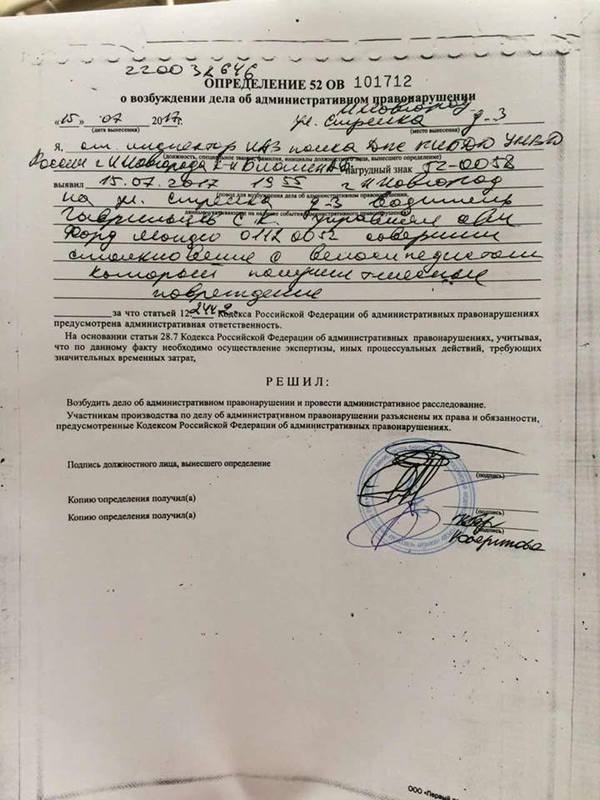 220032646
ОПРЕДЕЛЕНИЕ 52 ОВ 101712
о возбуждении дела об административном правонарушении
«15» 07 2017г. ул. Стрелка д-3
(дата вынесения) (место вынесения)
я, ст. инспектор ИАЗ полка ДПС ГИБДД УМВД
России г. Н Новгорода к-н нагрудный знак 52-0058
выявил 15.07.2017 19 55 г Н Новгород
на ул. Стрелка д-3 Водитель
управляя а/м
Форд Мондео совершил
столкновение с велосипедистом
который получил телесные
повреждения
за что статьей 12. Кодекса Российской Федерации об административных правонарушениях
предусмотрена административная ответственность.
На основании статьи 28.7 Кодекса Российской Федерации об административных правонарушениях, учитывая,
что по данному факту необходимо осуществление экспертизы, иных процессуальных действий, требующих
значительных временных затрат,
РЕШИЛ:
Возбудить дело об административном правонарушении и провести административное расследование.
Участникам производства по делу об административном правонарушении разъяснены их права и обязанности,
предусмотренные Кодексом Российской Федерации об административных правонарушениях.
Подпись должностного лица, вынесшего определение
(подпись)
Копию определения получил(а)
(подпись)
Копию определения получил(а)
(подпись)
ООО «Первый